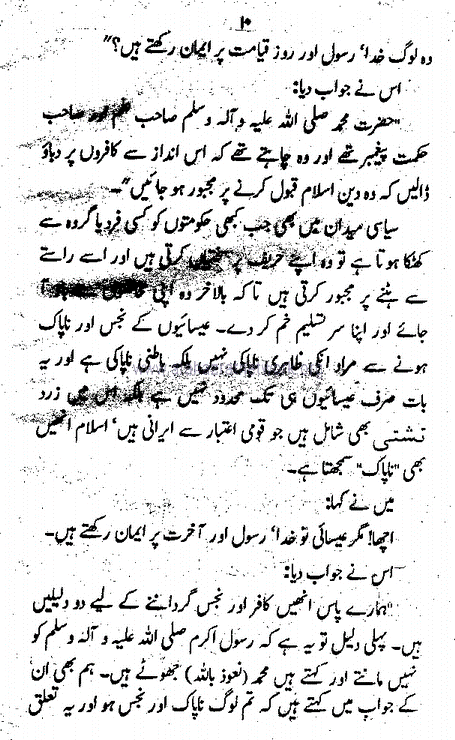 ۱۰
وہ لوگ خدا' رسول اور روز قیامت پر ایمان رکھتے ہیں؟"
اس نے جواب دیا:
"حضرت محمد صلی اللہ علیہ و آلہ وسلم صاحب علم اور صاحب
حکمت پیغمبر تھے اور وہ چاہتے تھے کہ اس انداز سے کافروں پر دباؤ
ڈالیں کہ وہ دین اسلام قبول کرنے پر مجبور ہو جائیں"۔
سیاسی میدان میں بھی جب کبھی حکومتوں کو کسی فرد یا گروہ سے
کھٹکا ہوتا ہے تو وہ اپنے حریف پر سختیاں کرتی ہیں اور اسے راستے
سے ہٹنے پر مجبور کرتی ہیں تا کہ بالاخر وہ اپنی آ
جائے اور اپنا سر تسلیم خم کر دے۔ عیسائیوں کے نجس اور ناپاک
ہونے سے مراد انکی ظاہری ناپاکی نہیں بلکہ باطنی ناپاکی ہے اور یہ
بات صرف عیسائیوں ہی تک محدود نہیں ہے بلکہ اس میں زرد
تشتی بھی شامل ہیں جو قومی اعتبار سے ایرانی ہیں' اسلام انھیں
بھی "ناپاک" سمجھتا ہے۔
میں نے کہا:
اچھا! مگر عیسائی تو خدا' رسول اور آخرت پر ایمان رکھتے ہیں۔
اس نے جواب دیا:
"ہمارے پاس انھیں کافر اور نجس گرداننے کے لیے دو دلیلیں
ہیں۔ پہلی دلیل تو یہ ہے کہ رسول اکرم صلی اللہ علیہ و آلہ وسلم کو
نہیں مانتے اور کہتے ہیں محمد (نعوذ باللہ) جھوٹے ہیں۔ ہم بھی ان
کے جواب میں کہتے ہیں کہ تم لوگ ناپاک اور نجس ہو اور یہ تعلق